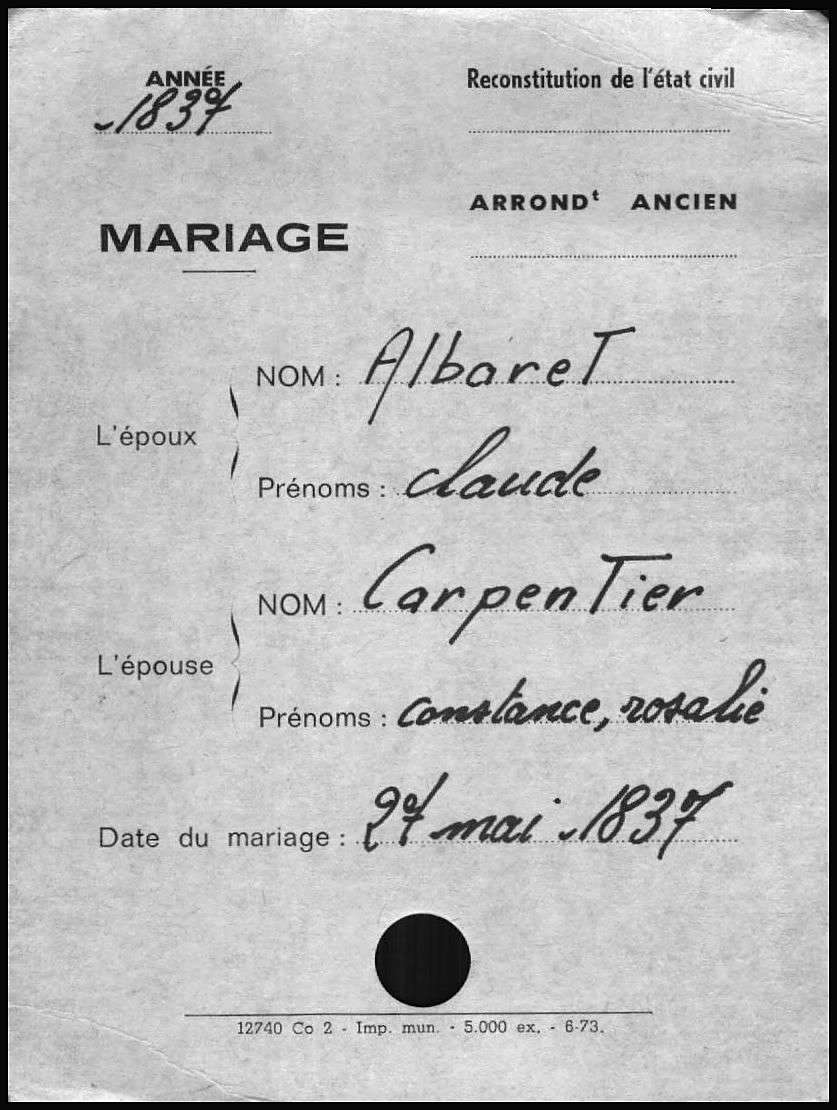 ANNÉE
1837
Reconstitution de l'état civil
ARRONDt ANCIEN
MARIAGE
L'époux
NOM : Albaret
Prénoms : claude
L'épouse
NOM : Carpentier
Prénoms : constance, rosalie
Date du mariage : 27 mai 1837
12740 Co 2 - Imp. mun. - 5.000 ex. - 6-73.